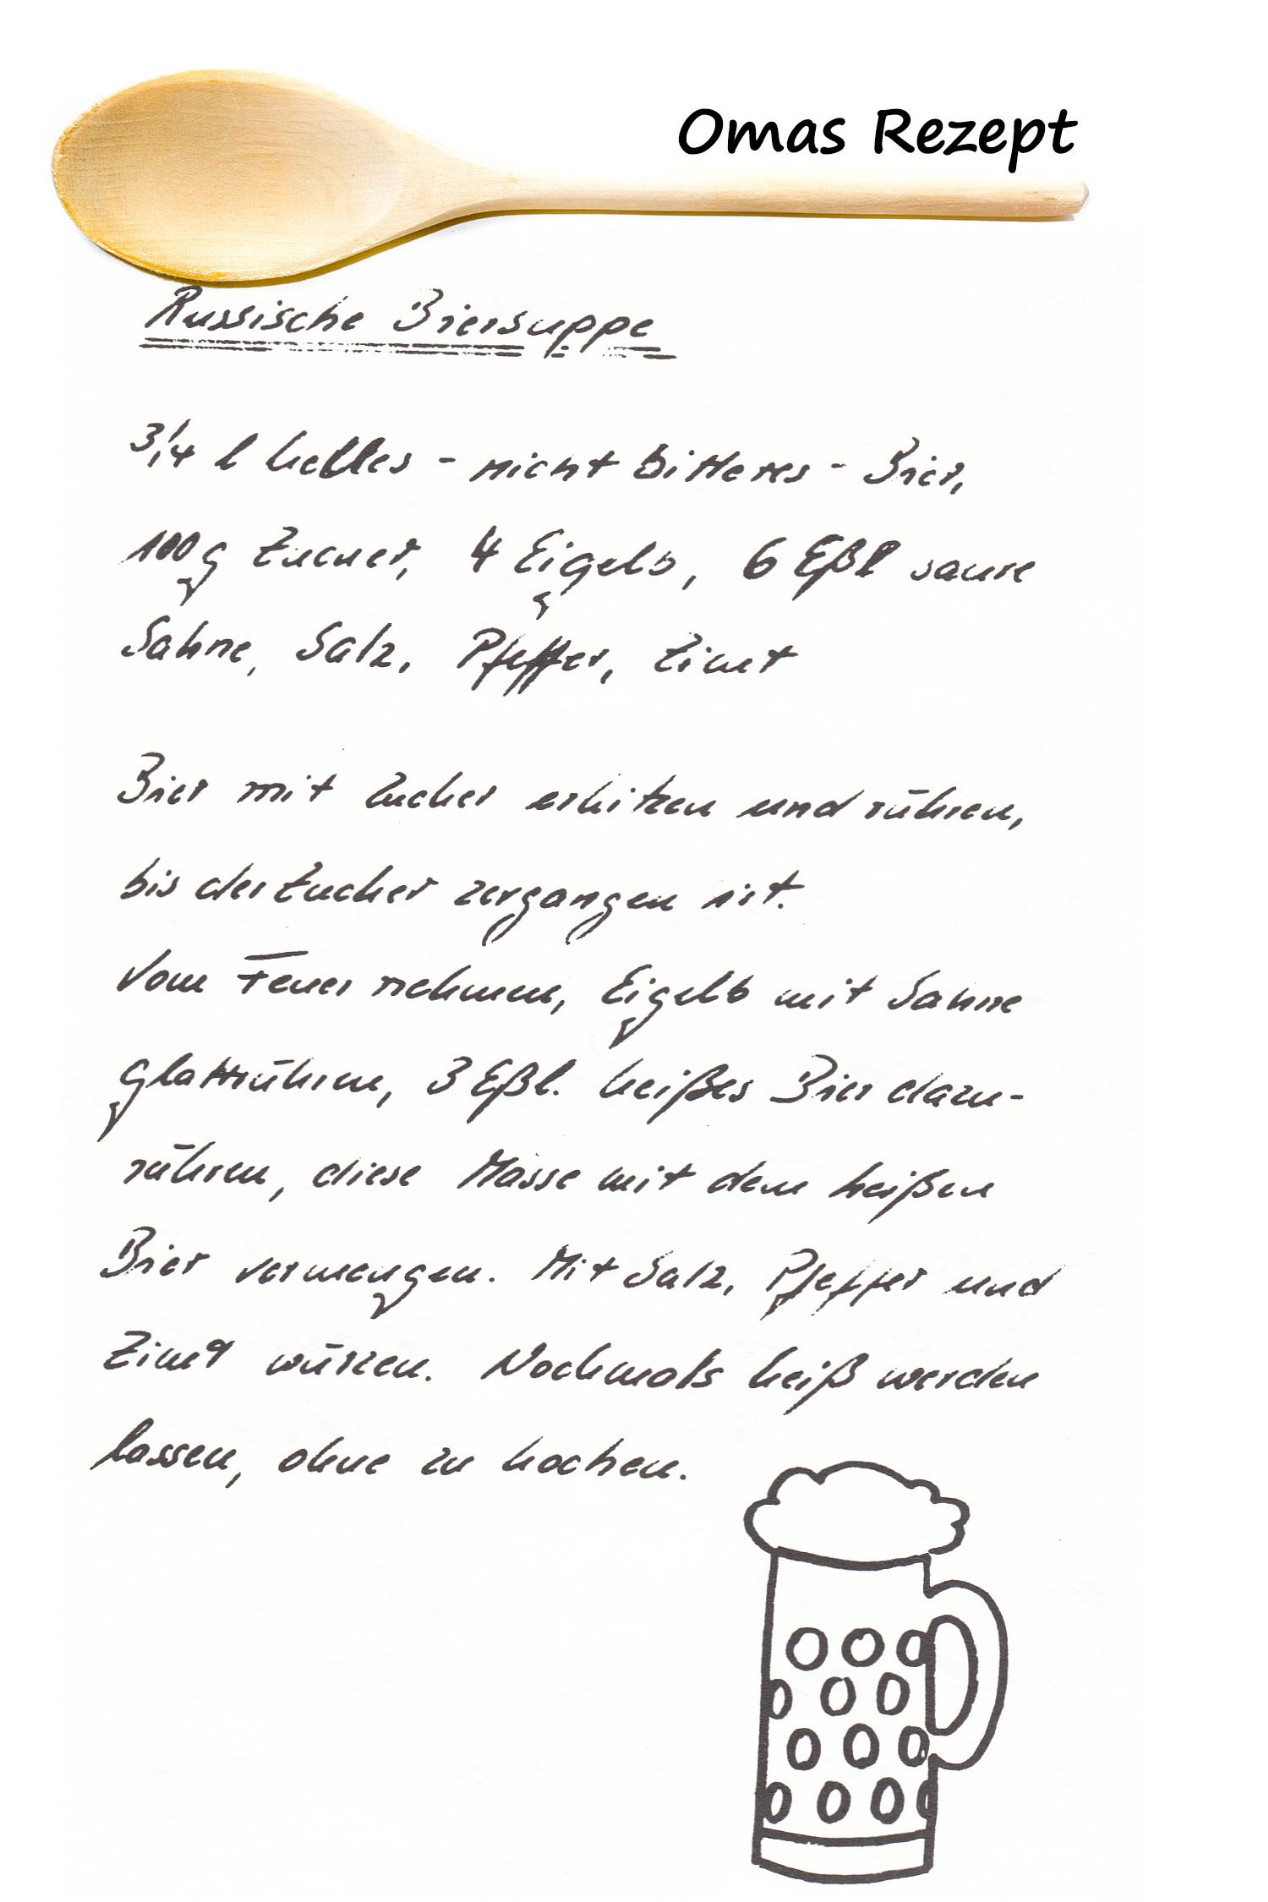 Omas Rezept
Russische Biersuppe
3/4 l helles - nicht bitteres - Bier,
100g Zucker, 4 Eigelb, 6 Eßl saure
Sahne, Salz, Pfeffer, Zimt
Bier mit Zucker erhitzen und rühren,
bis der Zucker zergangen ist.
Vom Feuer nehmen, Eigelb mit Sahne
glattrühren, 3 Eßl. heißes Bier dazu-
rühren, diese Masse mit dem heißen
Bier vermengen. Mit Salz, Pfeffer und
Zimt würzen. Nochmals heiß werden
lassen, ohne zu kochen.